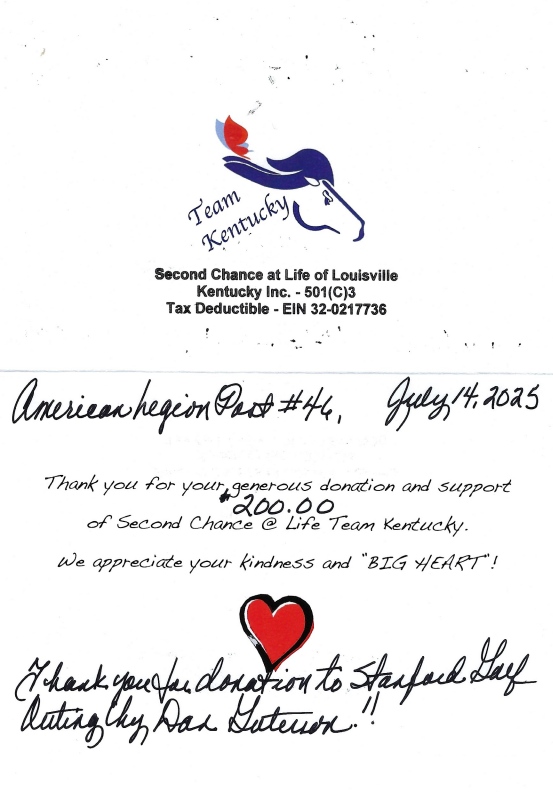 Team
Kentucky
Second Chance at Life of Louisville
Kentucky Inc. - 501(C)3
Tax Deductible - EIN 32-0217736
American Legion Post #46, July 14, 2025
Thank you for your generous donation and support
$200.00
of Second Chance @ Life Team Kentucky.
We appreciate your kindness and "BIG HEART"!
Thank you for donation to Stanford Golf
Outing by Dan